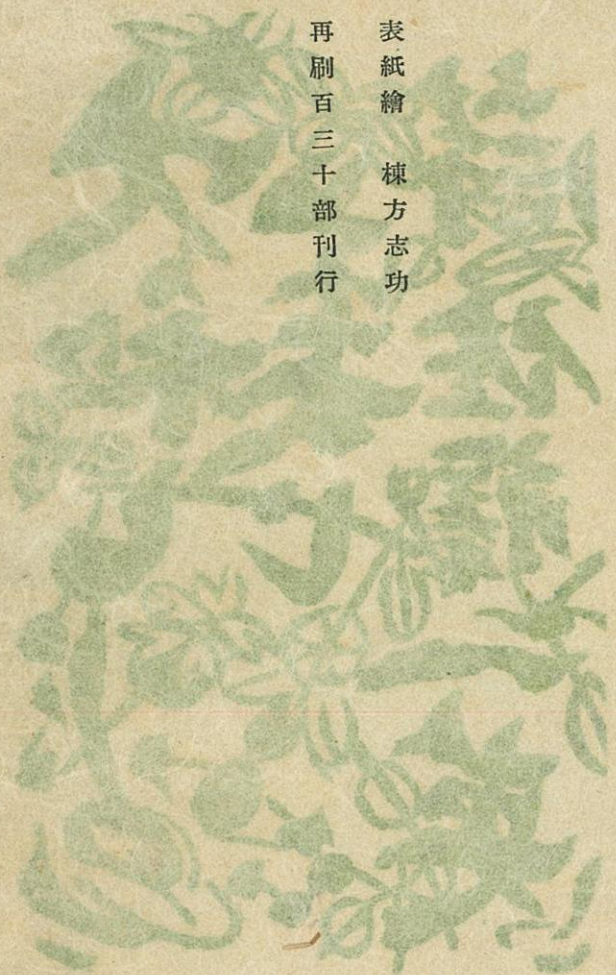 表紙繪　棟方志功
再刷百三十部刊行